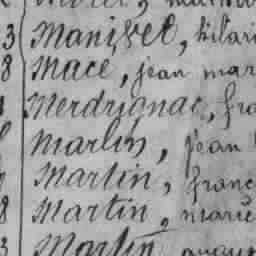 3 Manivel, hilari
8 Macé, jean mar
Merdrignac, fra
Marlin, jean
Martin, franc
8 Martin, marie
3 Martin, augus